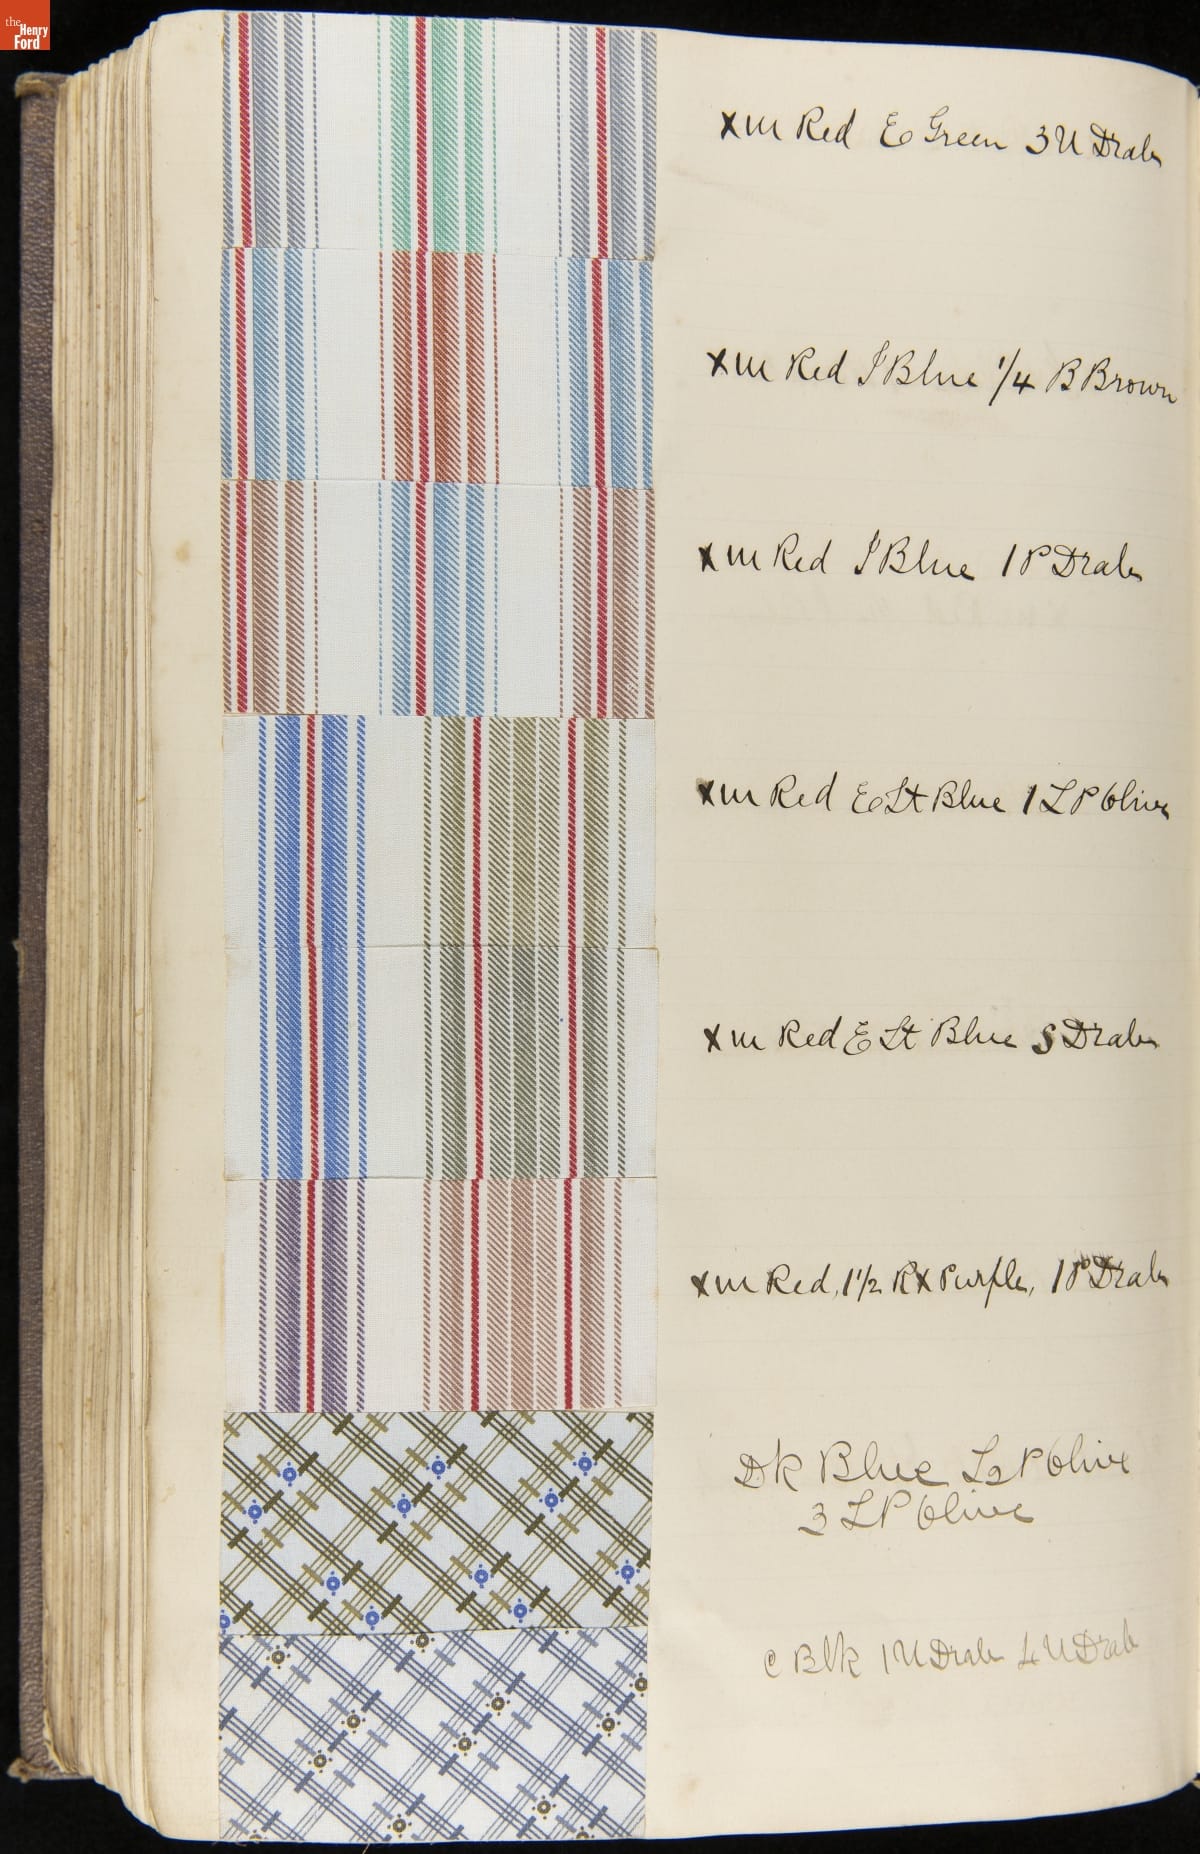 the
Henry
Ford
Xm Red E Green 3U Drab
Xm Red J Blue 1/4 B Brown
Xm Red J Blue 1P Drab
Xm Red E Lt Blue 1 LP Olive
Xm Red E Lt Blue S Drab
Xm Red, 1 1/2 RX Purple, 1P Drab
Dk Blue P Olive
3 LP Olive
C Blk 1U Drab 4U Drab